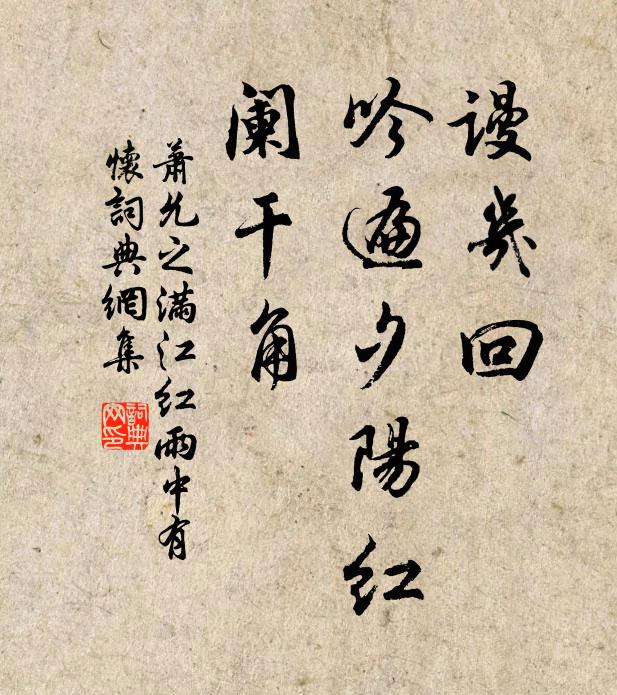 謾幾回
吟遍夕陽紅
闌干角
蕭允之满江紅雨中有
懷詞典網集
詞典网印